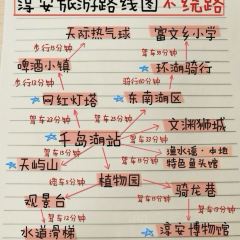 淳安旅游路线图 不绕路
天际热气球
富文乡小学
步行15分钟
驾车35分钟
啤酒小镇
环湖骑行
步行12分钟
骑行60分钟
网红灯塔
东南湖区
驾车23分钟
驾车22分钟
文渊狮城
千岛湖站
驾车55分钟
驾车15分钟
渔水谣·本地
特色鱼头馆
天屿山
植物园
缆车5分钟
骑龙巷
观景台
驾车17分钟
驾车12分钟
水道滑梯
淳安博物馆